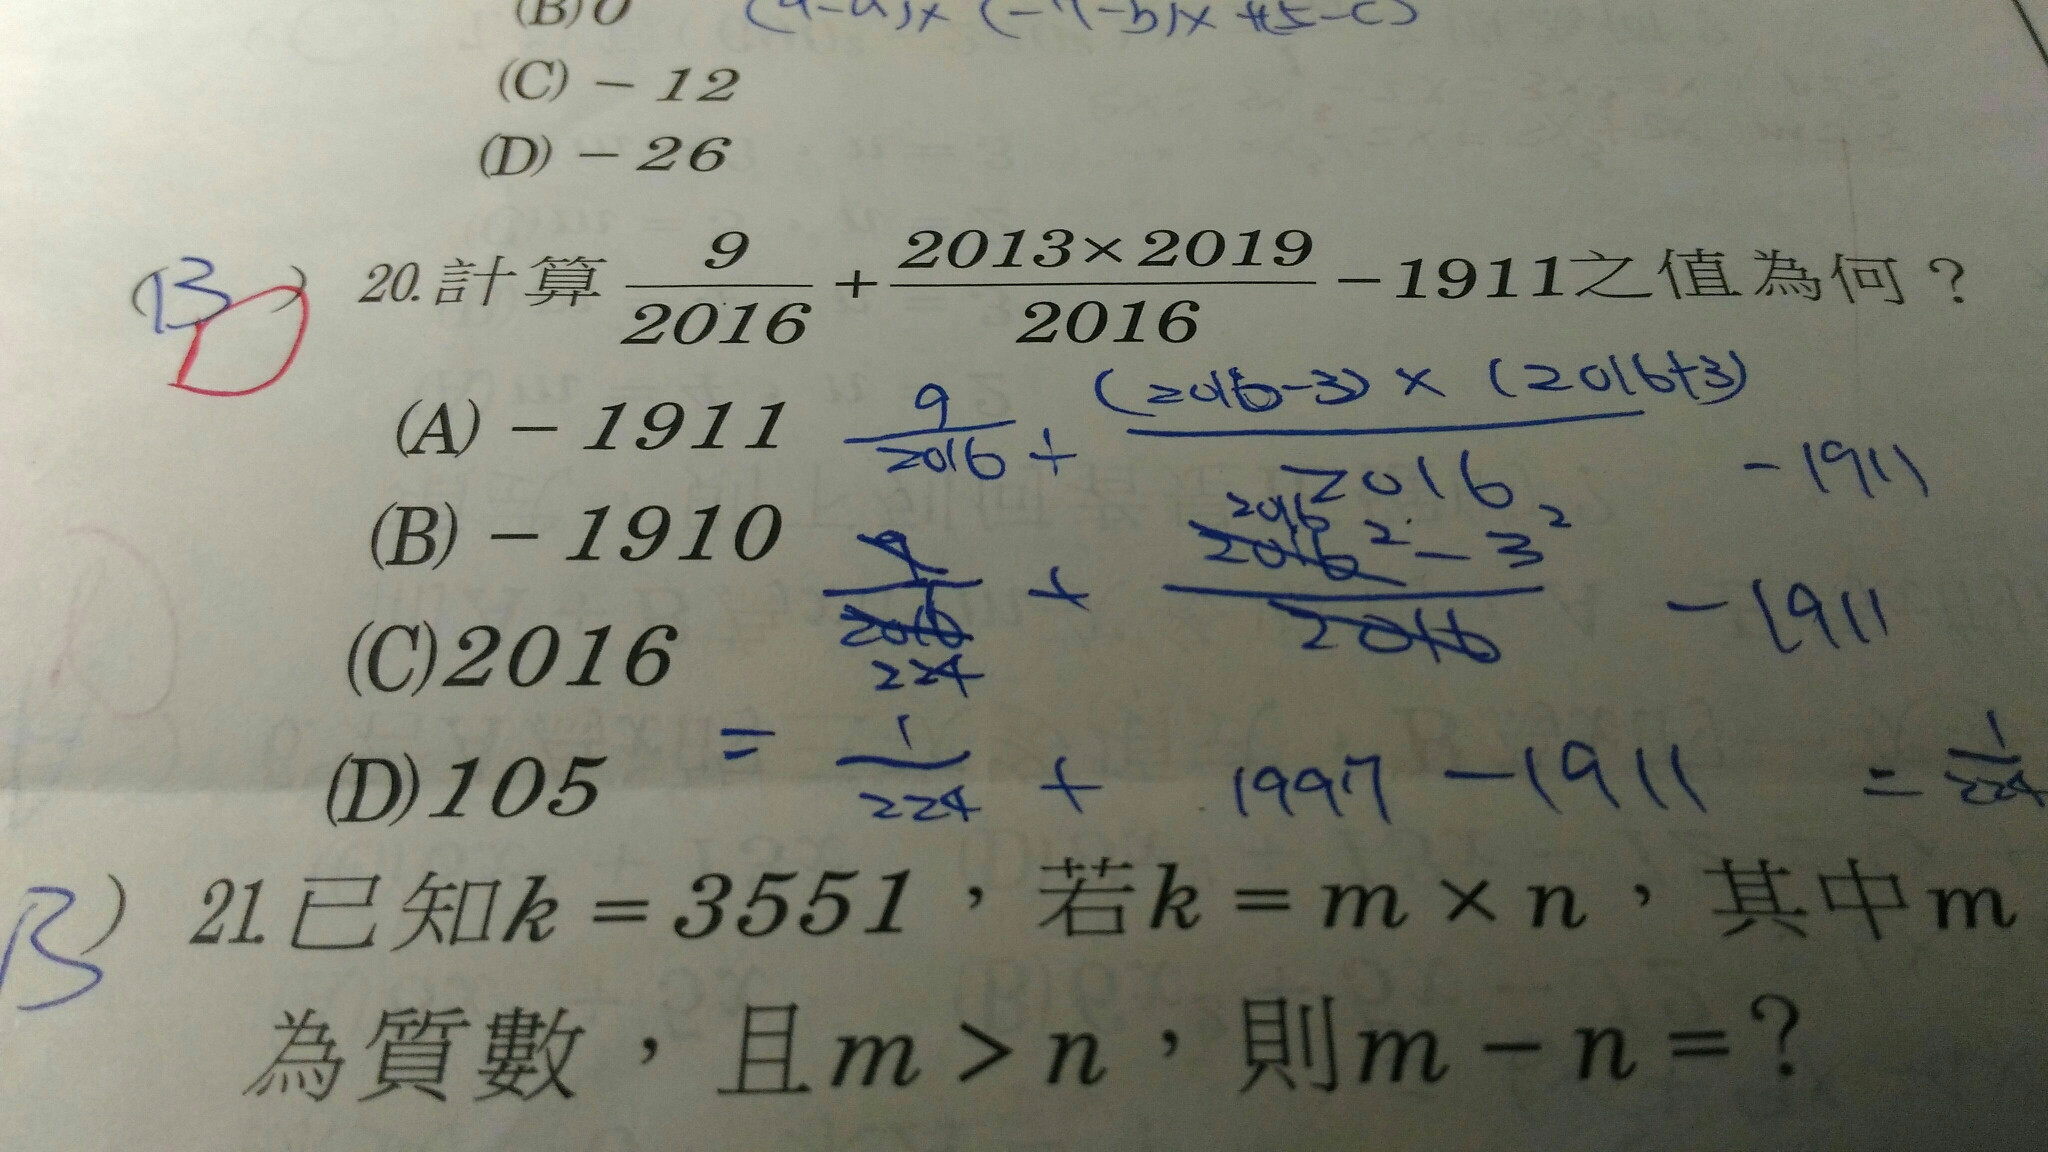 (B) 0
(C) -12
(D) -26
(B) 20. 計算 9/2016 + 2013×2019/2016 -1911之值為何？
(A) -1911
9/2016 + (2016-3)×(2016+3)/2016 -1911
(B) -1910
9/2016 + 2016² - 3²/2016 -1911
2016
224
(C) 2016
(D) 105
= 1/224 + 1997 -1911 = 1/224
B) 21. 已知k=3551，若k=m×n，其中m
為質數，且m>n，則m-n=？